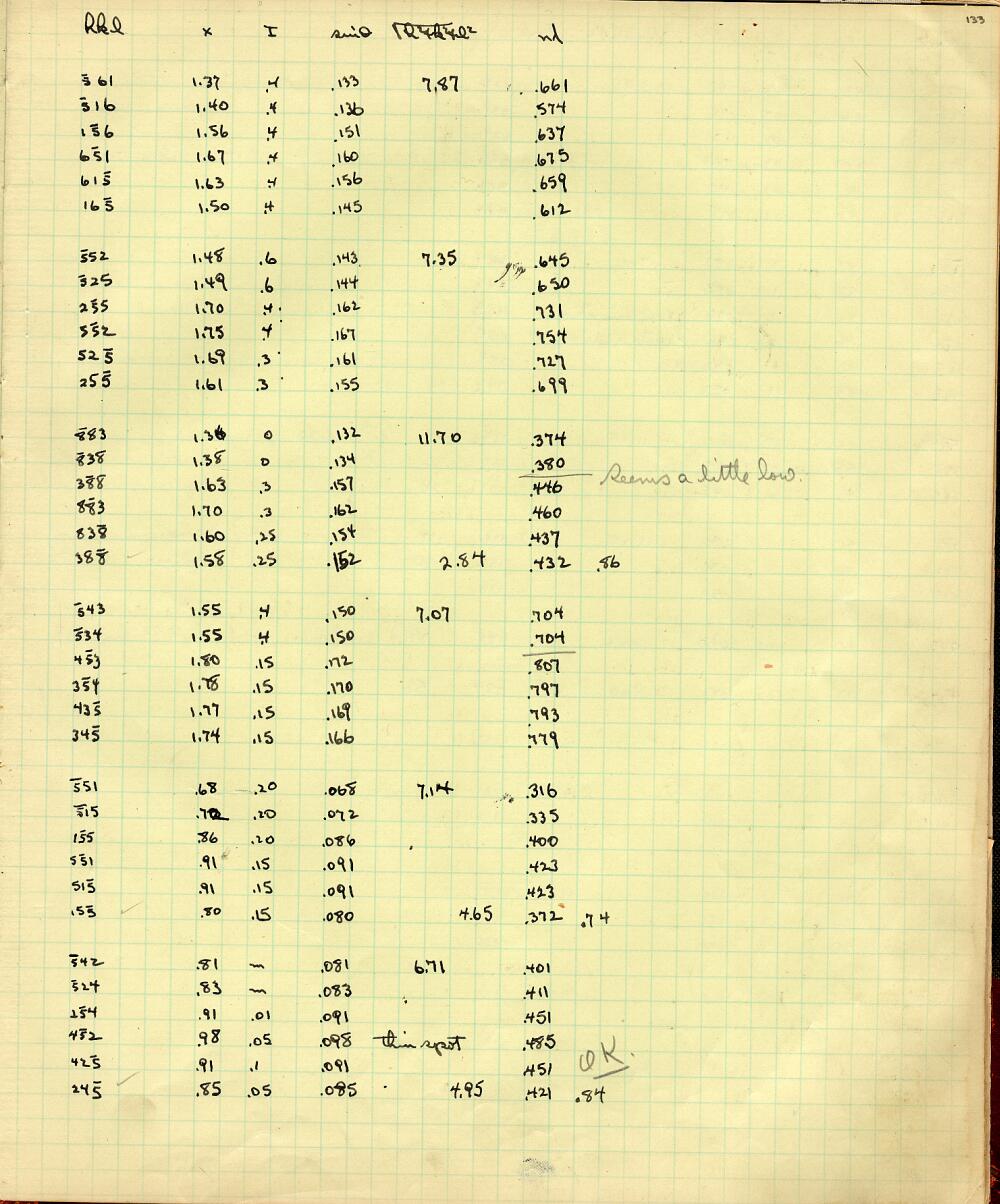 133
hkl x I sinθ √h²+k²+l² nλ
5̅61 1.37 .4 .133 7.87 .661
5̅16 1.40 .4 .136 .574
15̅6 1.56 .4 .151 .637
65̅1 1.67 .4 .160 .675
615̅ 1.63 .4 .156 .659
165̅ 1.50 .4 .145 .612
5̅52 1.48 .6 .143 7.35 .645
5̅25 1.49 .6 .144 .650
25̅5 1.70 .4 .162 .731
55̅2 1.75 .4 .167 .754
525̅ 1.69 .3 .161 .727
255̅ 1.61 .3 .155 .699
8̅83 1.36 0 .132 11.70 .374
8̅38 1.38 0 .134 .380
38̅8 1.63 .3 .157 .446 Seems a little low.
88̅3 1.70 .3 .162 .460
838̅ 1.60 .25 .154 .437
388̅ 1.58 .25 .152 2.84 .432 .86
5̅43 1.55 .4 .150 7.07 .704
5̅34 1.55 .4 .150 .704
45̅3 1.80 .15 .172 .807
35̅4 1.78 .15 .170 .797
435̅ 1.77 .15 .169 .793
345̅ 1.74 .15 .166 .779
5̅51 .68 .20 .068 7.14 .316
5̅15 .72 .20 .072 .335
15̅5 .86 .20 .086 .400
55̅1 .91 .15 .091 .423
515̅ .91 .15 .091 .423
155̅ .80 .15 .080 4.65 .372 .74
5̅42 .81 .081 6.71 .401
5̅24 .83 .083 .411
25̅4 .91 .01 .091 .451
45̅2 .98 .05 .098 thin spot .485
425̅ .91 .1 .091 .451 OK.
245̅ .85 .05 .085 4.95 .421 .84